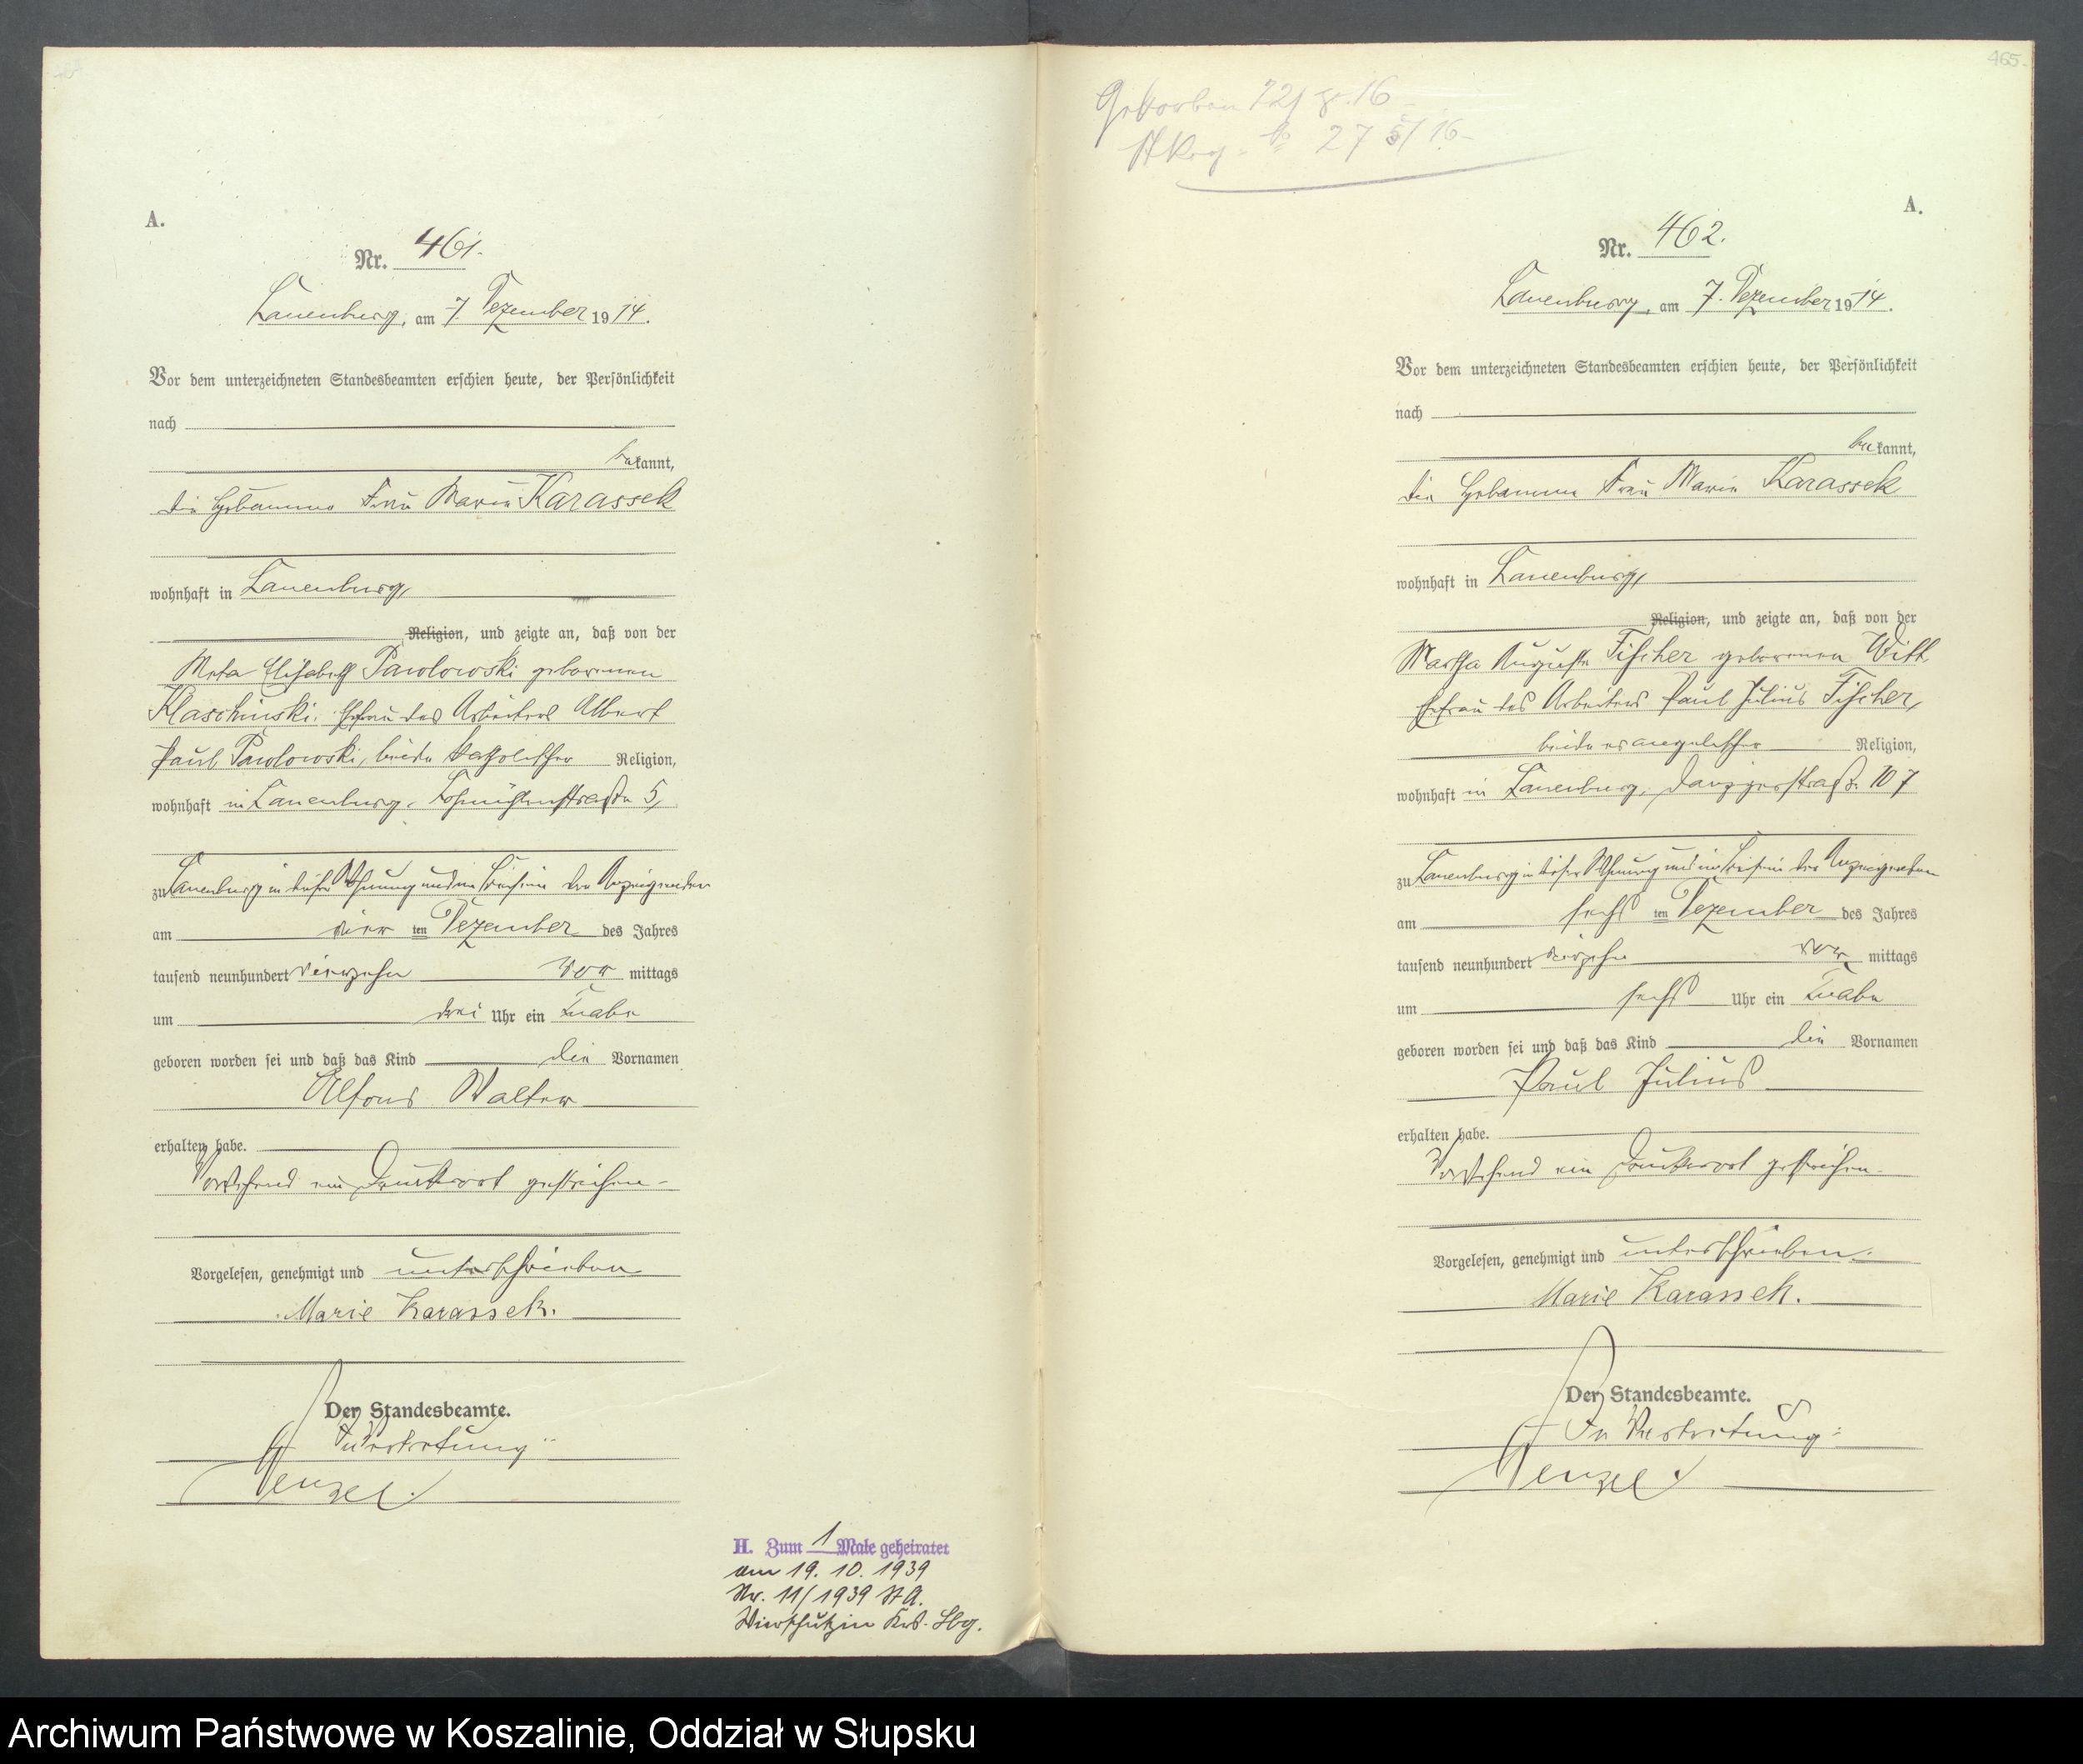 A.
Nr. 461.
Lauenburg, am 7. Dezember 1914.
Vor dem unterzeichneten Standesbeamten erschien heute, der Persönlichkeit
nach
bekannt,
die Hebamme Frau Marie Karassek
wohnhaft in Lauenburg,
Religion, und zeigte an, daß von der
Meta Elisabeth Pawlowski geborenen
Klaschinski, Ehefrau des Arbeiters Albert
Paul Pawlowski, beide katholischer Religion,
wohnhaft in Lauenburg, Lohmühlenstraße 5,
zu Lauenburg in dieser Wohnung und im Beisein der Anzeigenden
am vier ten Dezember des Jahres
tausend neunhundert vierzehn vor mittags
um drei Uhr ein Knabe
geboren worden sei und daß das Kind die Vornamen
Alfons Walter
erhalten habe.
Vorstehend ein Druckwort gestrichen.
Vorgelesen, genehmigt und unterschrieben
Marie Karassek.
Der Standesbeamte.
In Vertretung:
Wenzel.
H. Zum 1 Male geheiratet
am 19. 10. 1939
Nr. 11/1939 St A.
Wierschutzin Krs. Lbg.
465.
Gestorben 16
No 275/16
A.
Nr. 462.
Lauenburg, am 7. Dezember 1914.
Vor dem unterzeichneten Standesbeamten erschien heute, der Persönlichkeit
nach
bekannt,
die Hebamme Frau Marie Karassek
wohnhaft in Lauenburg,
Religion, und zeigte an, daß von der
Martha Auguste Fischer geborenen Witt,
Ehefrau des Arbeiters Paul Julius Fischer,
beide evangelischer Religion,
wohnhaft in Lauenburg, Danzigerstraße 107
zu Lauenburg in dieser Wohnung und im Beisein der Anzeigenden
am sechs ten Dezember des Jahres
tausend neunhundert vierzehn vor mittags
um sechs Uhr ein Knabe
geboren worden sei und daß das Kind die Vornamen
Paul Julius
erhalten habe.
Vorstehend ein Druckwort gestrichen.
Vorgelesen, genehmigt und unterschrieben.
Marie Karassek.
Der Standesbeamte.
In Vertretung:
Wenzel.
Archiwum Państwowe w Koszalinie, Oddział w Słupsku